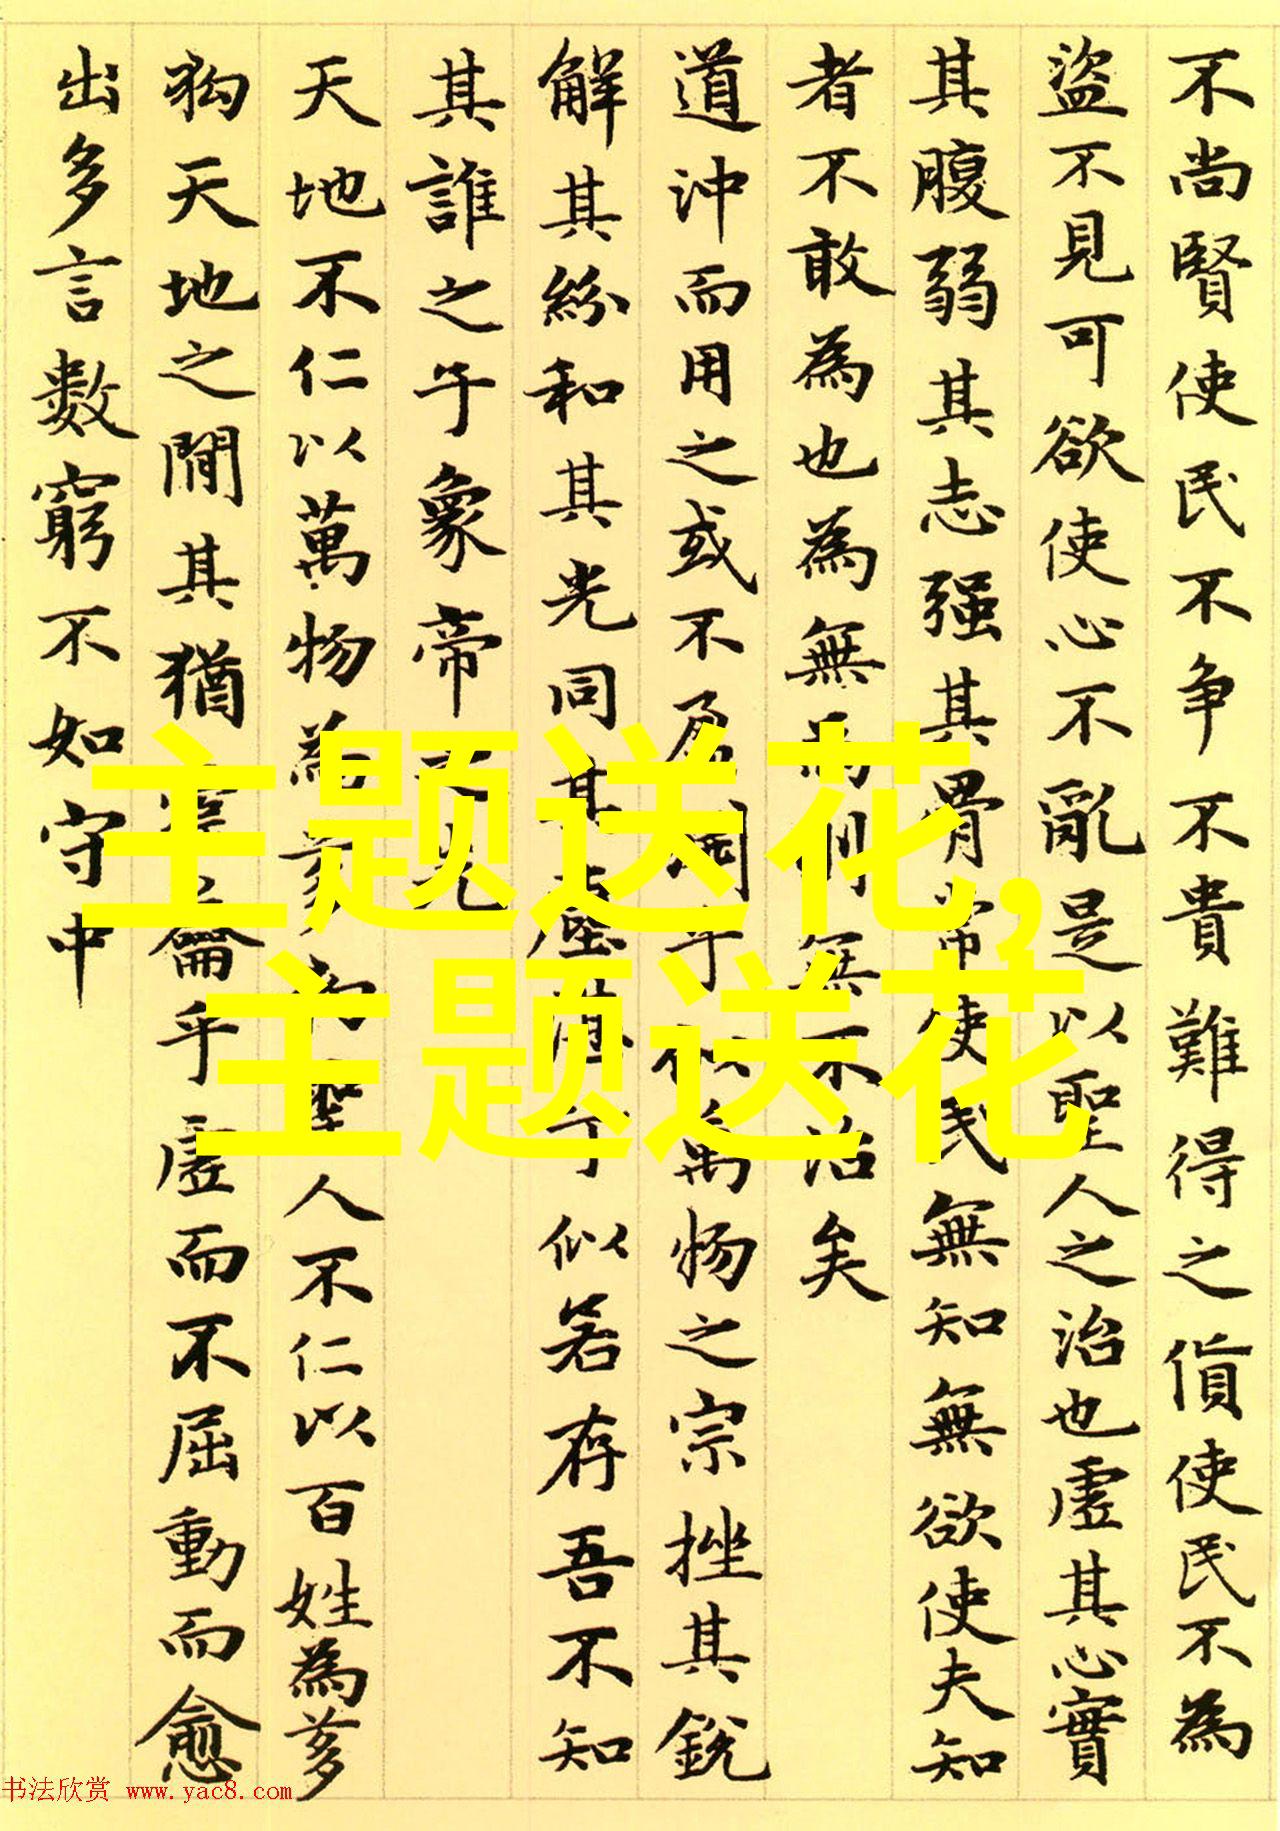 不尚賢使民不争不貴難得之貨使民不為
盜不見可欲使心不亂是以聖人之治也虛其心實
其腹弱其志强其骨常使民無知無欲使夫知
者不敢為也為無為則無不治矣
道沖而用之或不盈淵乎似萬物之宗挫其銳
解其紛和其光同其塵湛乎似若存吾不知
其誰之子象帝之先
天地不仁以萬物為芻狗聖人不仁以百姓為芻
狗天地之間其猶籥乎虛而不屈動而愈
出多言數窮不如守中
主题送花,
主题送花
书法欣赏 www.yac8.com